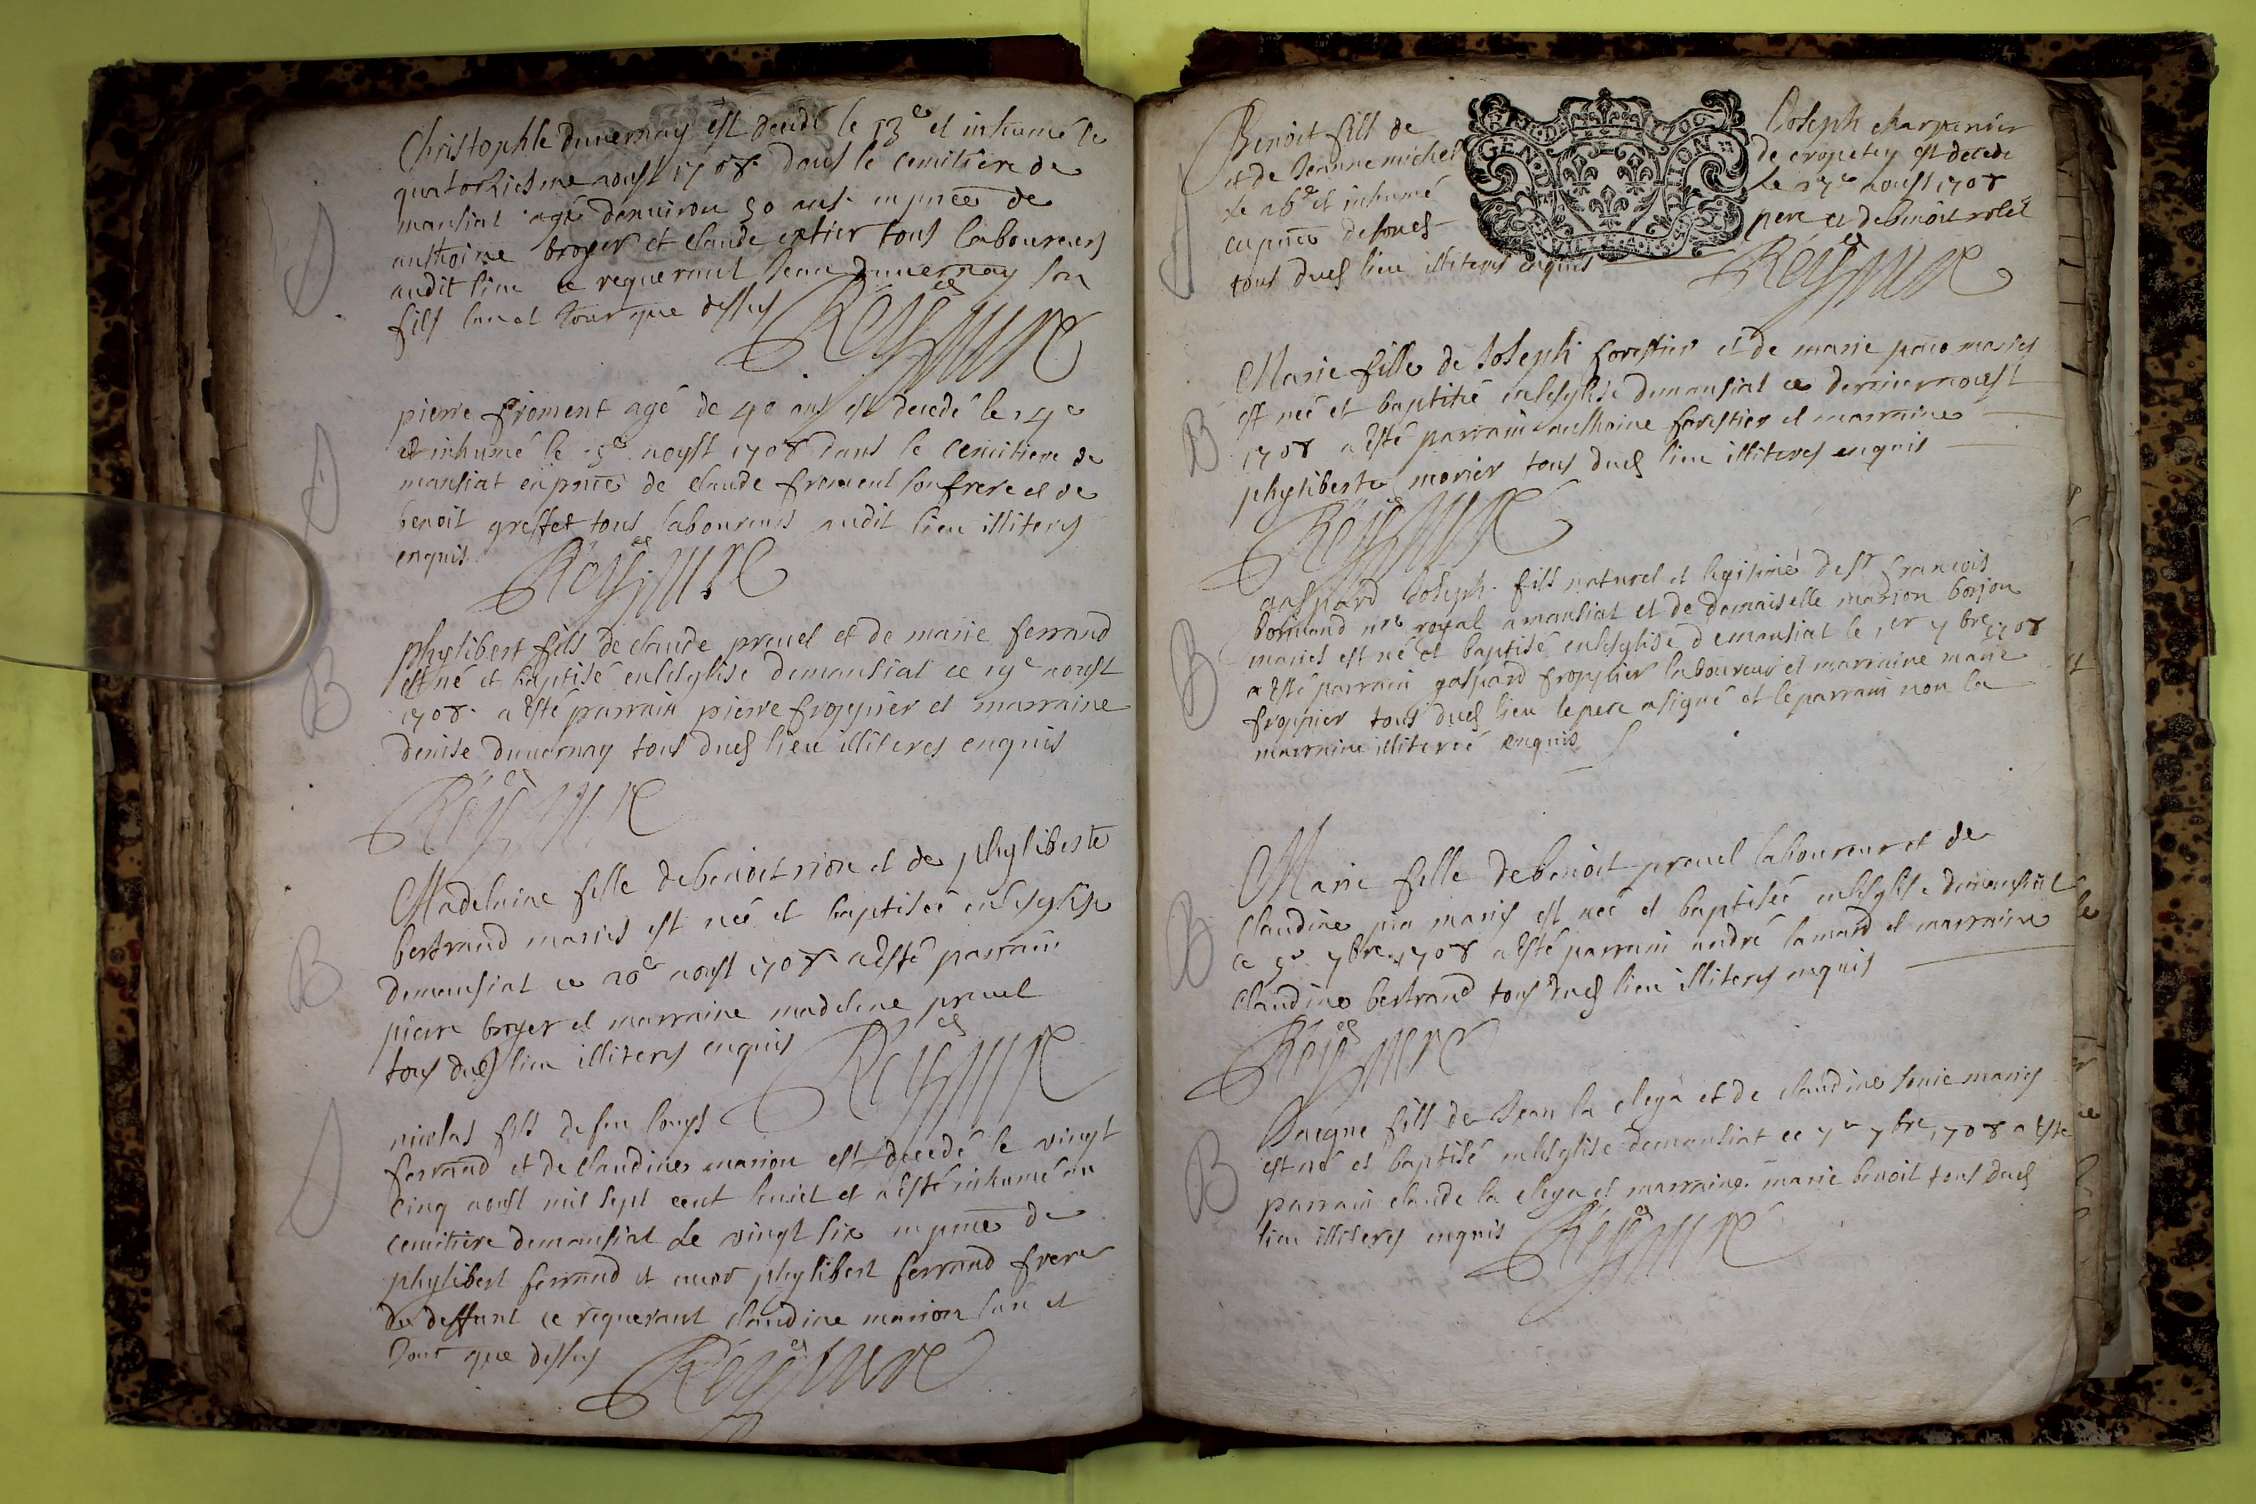 Christophle duuernay est decedé le 13e et inhumé le
quatorziesme aoust 1708 dans le cemitiere de
mansiat agé denuiron 50 ans en pnce de
anthoine broyer et claude
audit lieu ce requerant Jean duuernay son
fils lan et Jour que dessus
pierre froment agé de 40 ans est decedé le 14e
et inhumé le aoust 1708 dans le cemitiere de
mansiat en pnce de claude froment son frere et de
benoit greffet tous laboureurs audit lieu illiteres
enquis
phylibert fils de claude preuel et de marie ferrand
est né et baptisé en lesglise demansiat ce 19e aoust
1708 a esté parrain pierre froppier et marraine
denise duuernay tous dud lieu illiteres enquis
Madelaine fille debenoit rion et de phyliberte
bertrand maries est neé et baptiseé en lesglise
demansiat ce 20e aoust 1708 a esté parrain
pierre broyer et marraine madelene preuel
tous dud lieu illiteres enquis
nicolas fils de feu louys
ferrand et de claudine marion est decedé le vingt
cinq aoust mil sept cent huict et a esté inhumé au
cemitiere demansiat le vingt six en pnce de
phylibert ferrand et autre phylibert ferrand frere
du deffunt ce requerant claudine marion lan et
Jour que dessus
Benoit fils de Joseph charpentier
et de Jeanne michel de cropetey est decedé
le 26e et inhumé le 27e aoust 1708
en pnce de son pere et de benoit rolet
tous dud lieu illiteres enquis
GEN. D LION
Marie fille de Joseph forestier et de marie maries
est neé et baptisé en lesglise demansiat ce dernier aoust
1708 a esté parrain anthoine forestier et marraine
phyliberte morier tous dud lieu illiteres enquis
gaspard Joseph fils naturel et legitimé de sr francois
bormand nre royal a mansiat et de demaiselle marion borjon
maries est né et baptisé en lesglise demansiat le 1er 7bre 1708
a esté parrain gaspard froppier laboureur et marraine marie
froppier tous dud lieu le pere a signé et le parrain non la
marraine illitereé enquis
Marie fille debenoit preuel laboureur et de
claudine maries est neé et baptiseé en lesglise demansiat
ce 5e 7bre 1708 a esté parrain andré lamard et marraine
claudine bertrand tous dud lieu illiteres enquis
fils de Jean la cleya et de claudine maries
est né et baptisé en lesglise demansiat ce 7e 7bre 1708 a esté
parrain claude la cleya et marraine marie benoit tous dud
lieu illiteres enquis